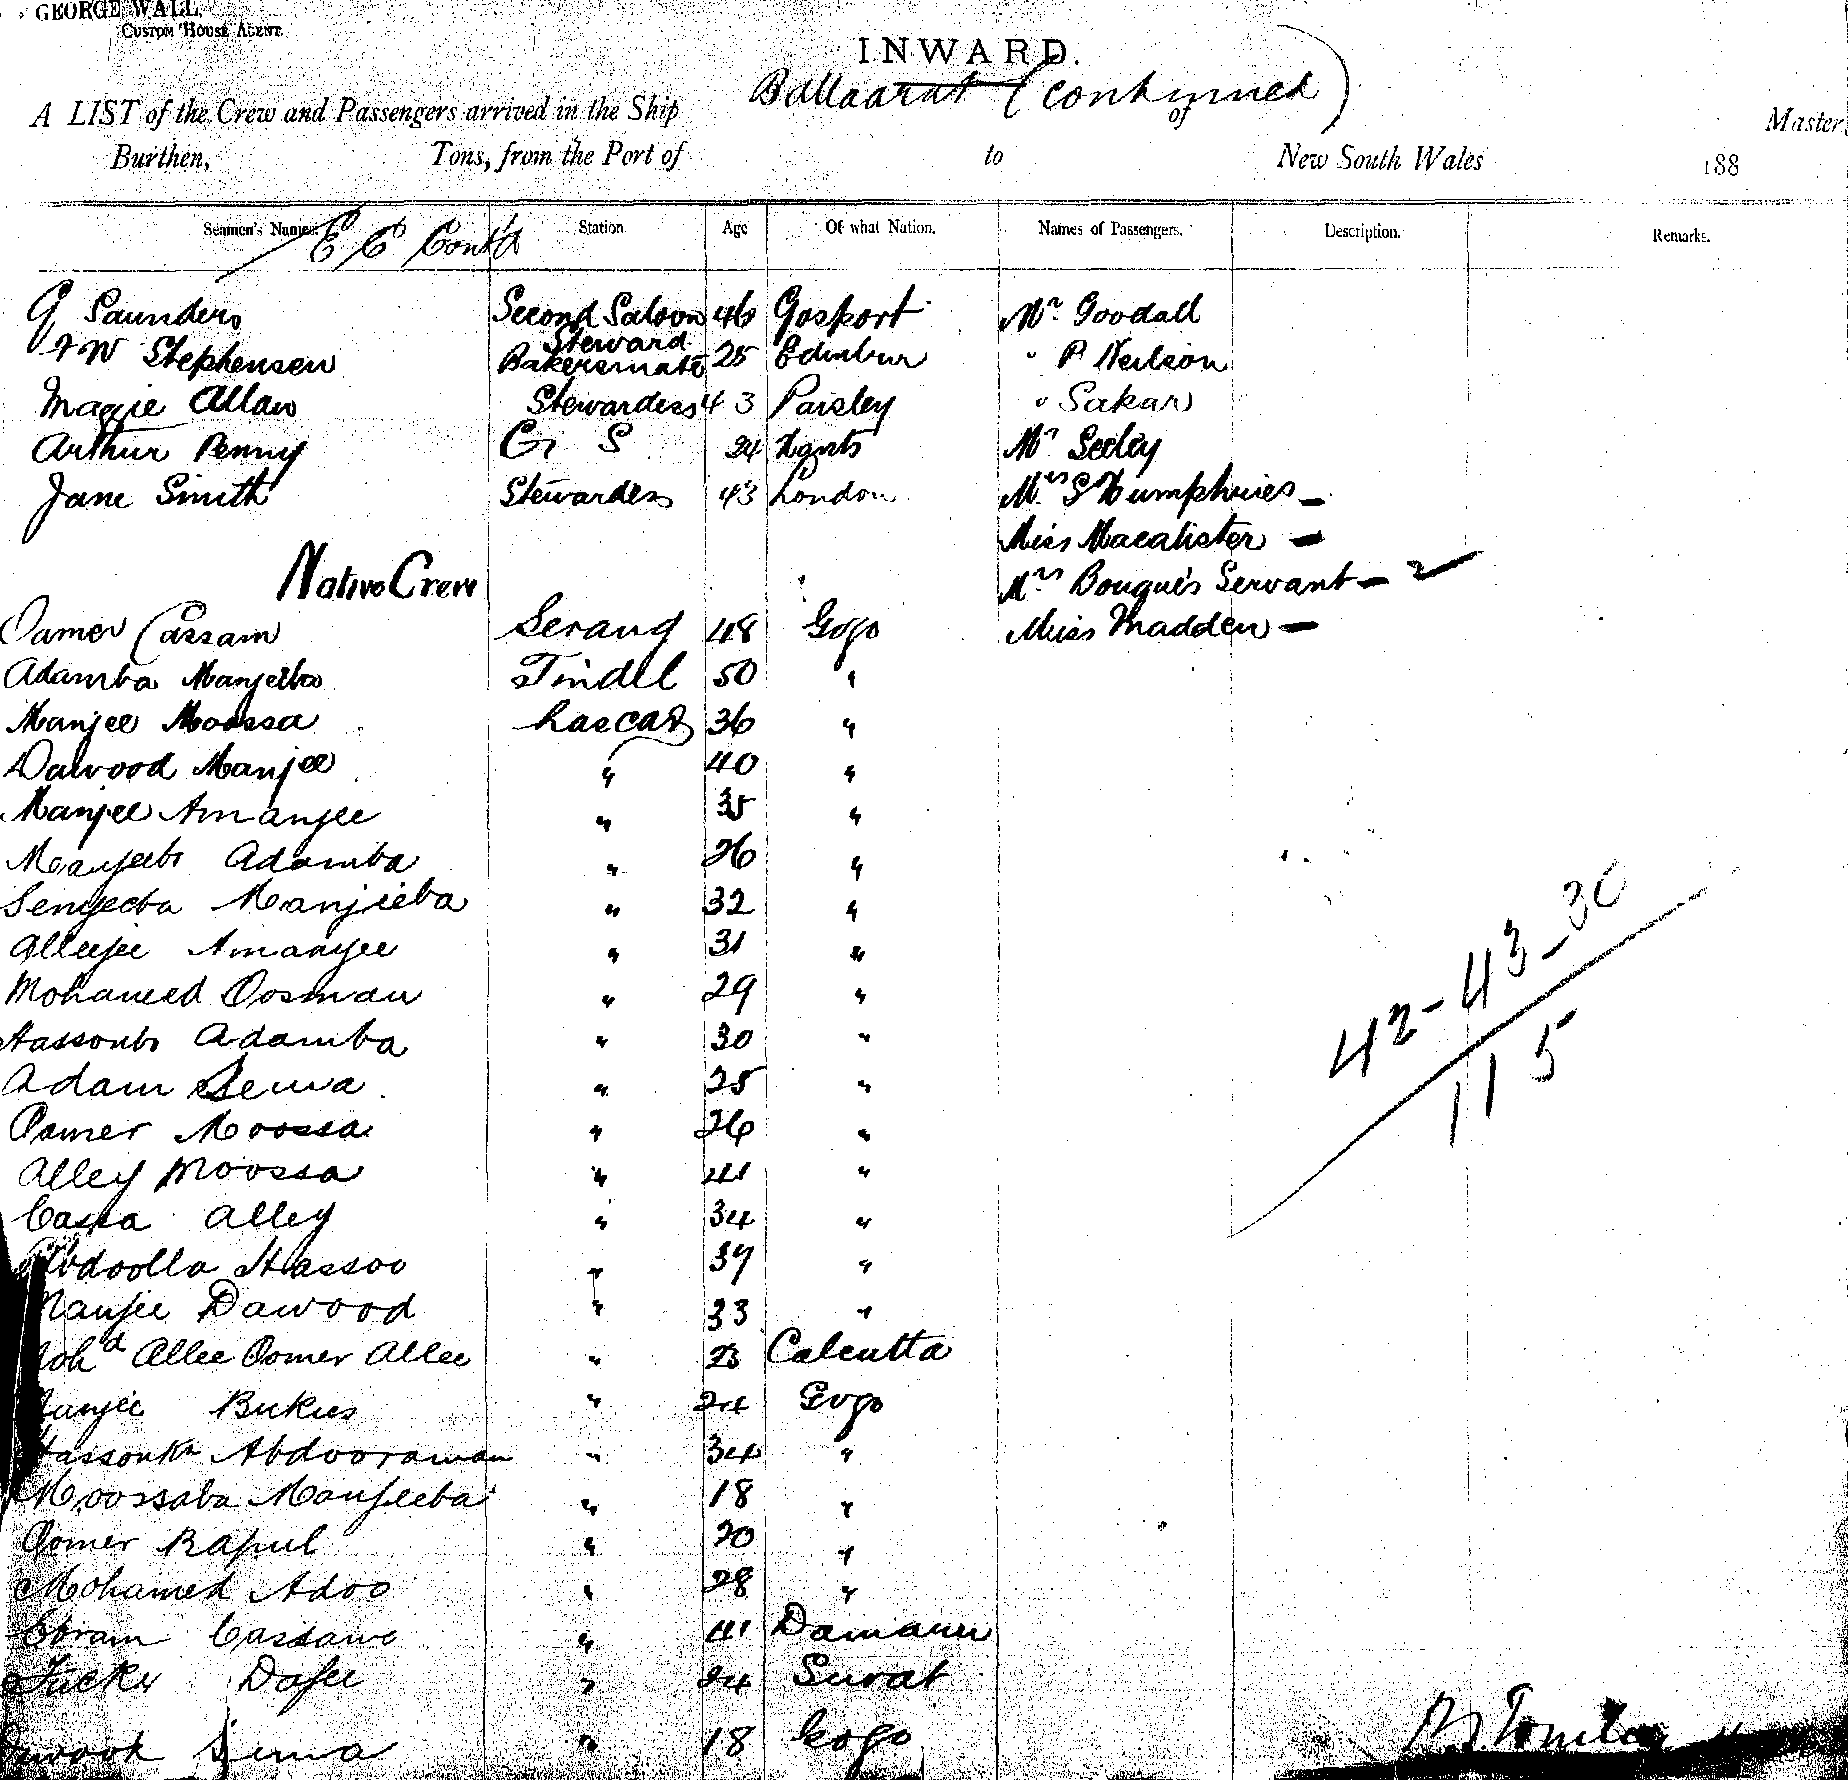 GEORGE WALL,
CUSTOM HOUSE AGENT.
INWARD.
Ballaarat (Continued)
A LIST of the Crew and Passengers arrived in the Ship of Master
Burthen, Tons, from the Port of to New South Wales 188
Seamen's Names. Station Age Of what Nation. Names of Passengers. Description. Remarks.
E C Contd
G Saunders Second Saloon Steward 46 Gosport Mr Goodall
W Stephensen Bakersmate 25 Edinbur " P Neilson
Maggie Allan Stewardess 43 Paisley " Sakar
Arthur Penny G S 24 Hants Mr Seeley
Jane Smith Stewardess 43 London Mrs S Humphries -
Miss Macalister -
Native Crew Mrs Bouquès Servant - 2
Oamer Cassam Serang 48 Gogo Miss Madden -
Adamba Manjeeba Tindel 50 "
Manjee Moossa Lascar 36 "
Dawood Manjee " 40 "
Manjee Amanjee " 35 "
Manjeeb Adamba " 26 "
Senjeeba Manjieba " 32 "
Alleejee Amanjee " 31 "
Mohamed Oosman " 29 "
Hassonb Adamba " 30 "
Adam Sewa " 25 "
Oomer Moossa " 26 "
Alley Moossa " 41 "
Cassa Alley " 34 "
Abdoolla Hassoo " 39 "
Manjee Dawood " 33 "
Mohd Allee Oomer Allee " 23 Calcutta
Manjee Bukus " 24 Gogo
Abdooraman " 34 "
Moossaba Manjeeba " 18 "
Oomer Rapul " 20 "
Mohamed Adoo " 28 "
Ebram Cassam " 41 Damaun
Dajee " 24 Surat
" 18 Gogo
42-43-30
115